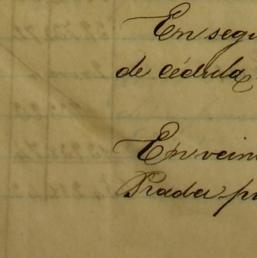 En segu
de cédula
En vein
Prada pr